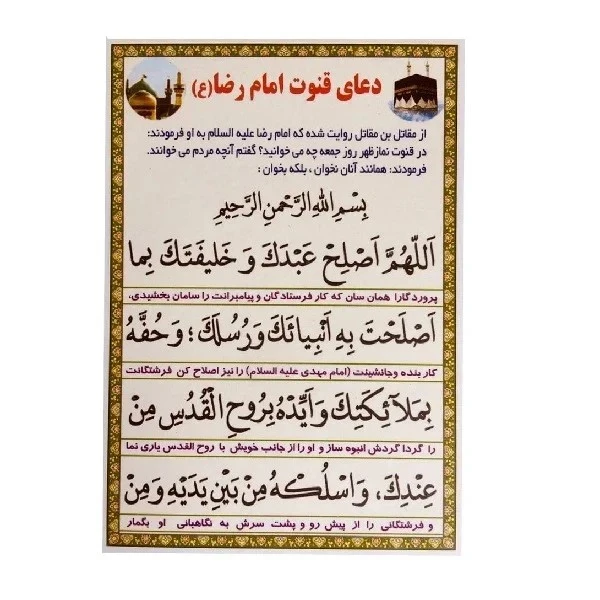 دعای قنوت امام رضا(ع)
از مقاتل بن مقاتل روایت شده که امام رضا علیه السلام به او فرمودند:
در قنوت نماز ظهر روز جمعه چه می خوانید؟ گفتم آنچه مردم می خوانند.
فرمودند: همانند آنان نخوان ، بلکه بخوان :
بِسْمِ اللهِ الرَّحْمنِ الرَّحِیمِ
اَللّهُمَّ اَصْلِحْ عَبْدَكَ وَ خَلیفَتَكَ بِما
پروردگارا همان سان که کار فرستادگان و پیامبرانت را سامان بخشیدی،
اَصْلَحْتَ بِهِ اَنْبِیائَكَ وَ رُسُلَكَ؛ وَ حُفَّهُ
کار بنده و جانشینت (امام مهدی علیه السلام) را نیز اصلاح کن فرشتگانت
بِمَلآئِکَتِكَ وَ اَیِّدْهُ بِرُوحِ الْقُدُسِ مِنْ
را گرداگردش انبوه ساز و او را از جانب خویش با روح القدس یاری نما
عِنْدِكَ، وَ اسْلُکْهُ مِنْ بَیْنِ یَدَیْهِ وَ مِنْ
و فرشتگانی را از پیش رو و پشت سرش به نگاهبانی او بگمار